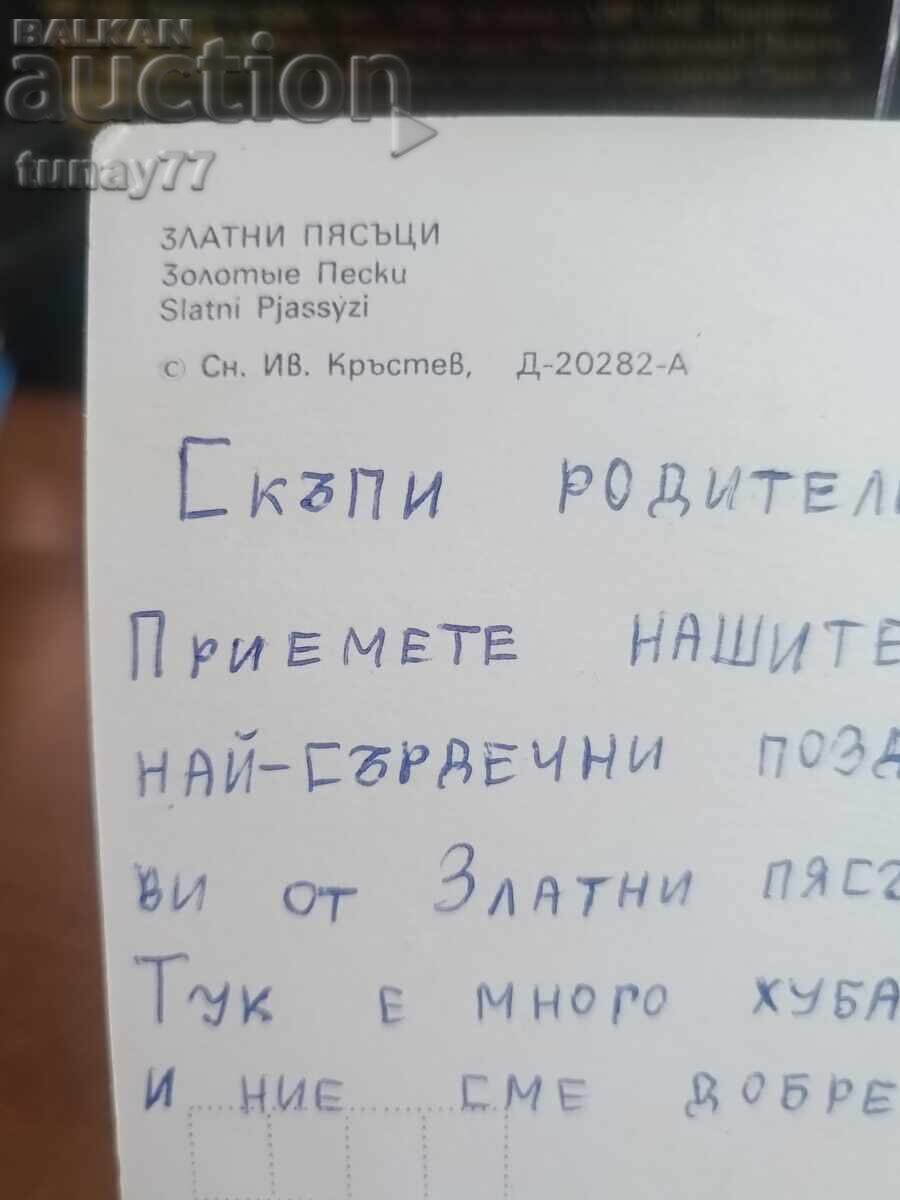 BALKAN
auction
tunay77
ЗЛАТНИ ПЯСЪЦИ
Золотые Пески
Slatni Pjassyzi
© Сн. Ив. Кръстев, Д-20282-А
Скъпи родители
Приемете нашите
най-сърдечни позд
ви от Златни пясъ
Тук е много хуба
и ние сме добре